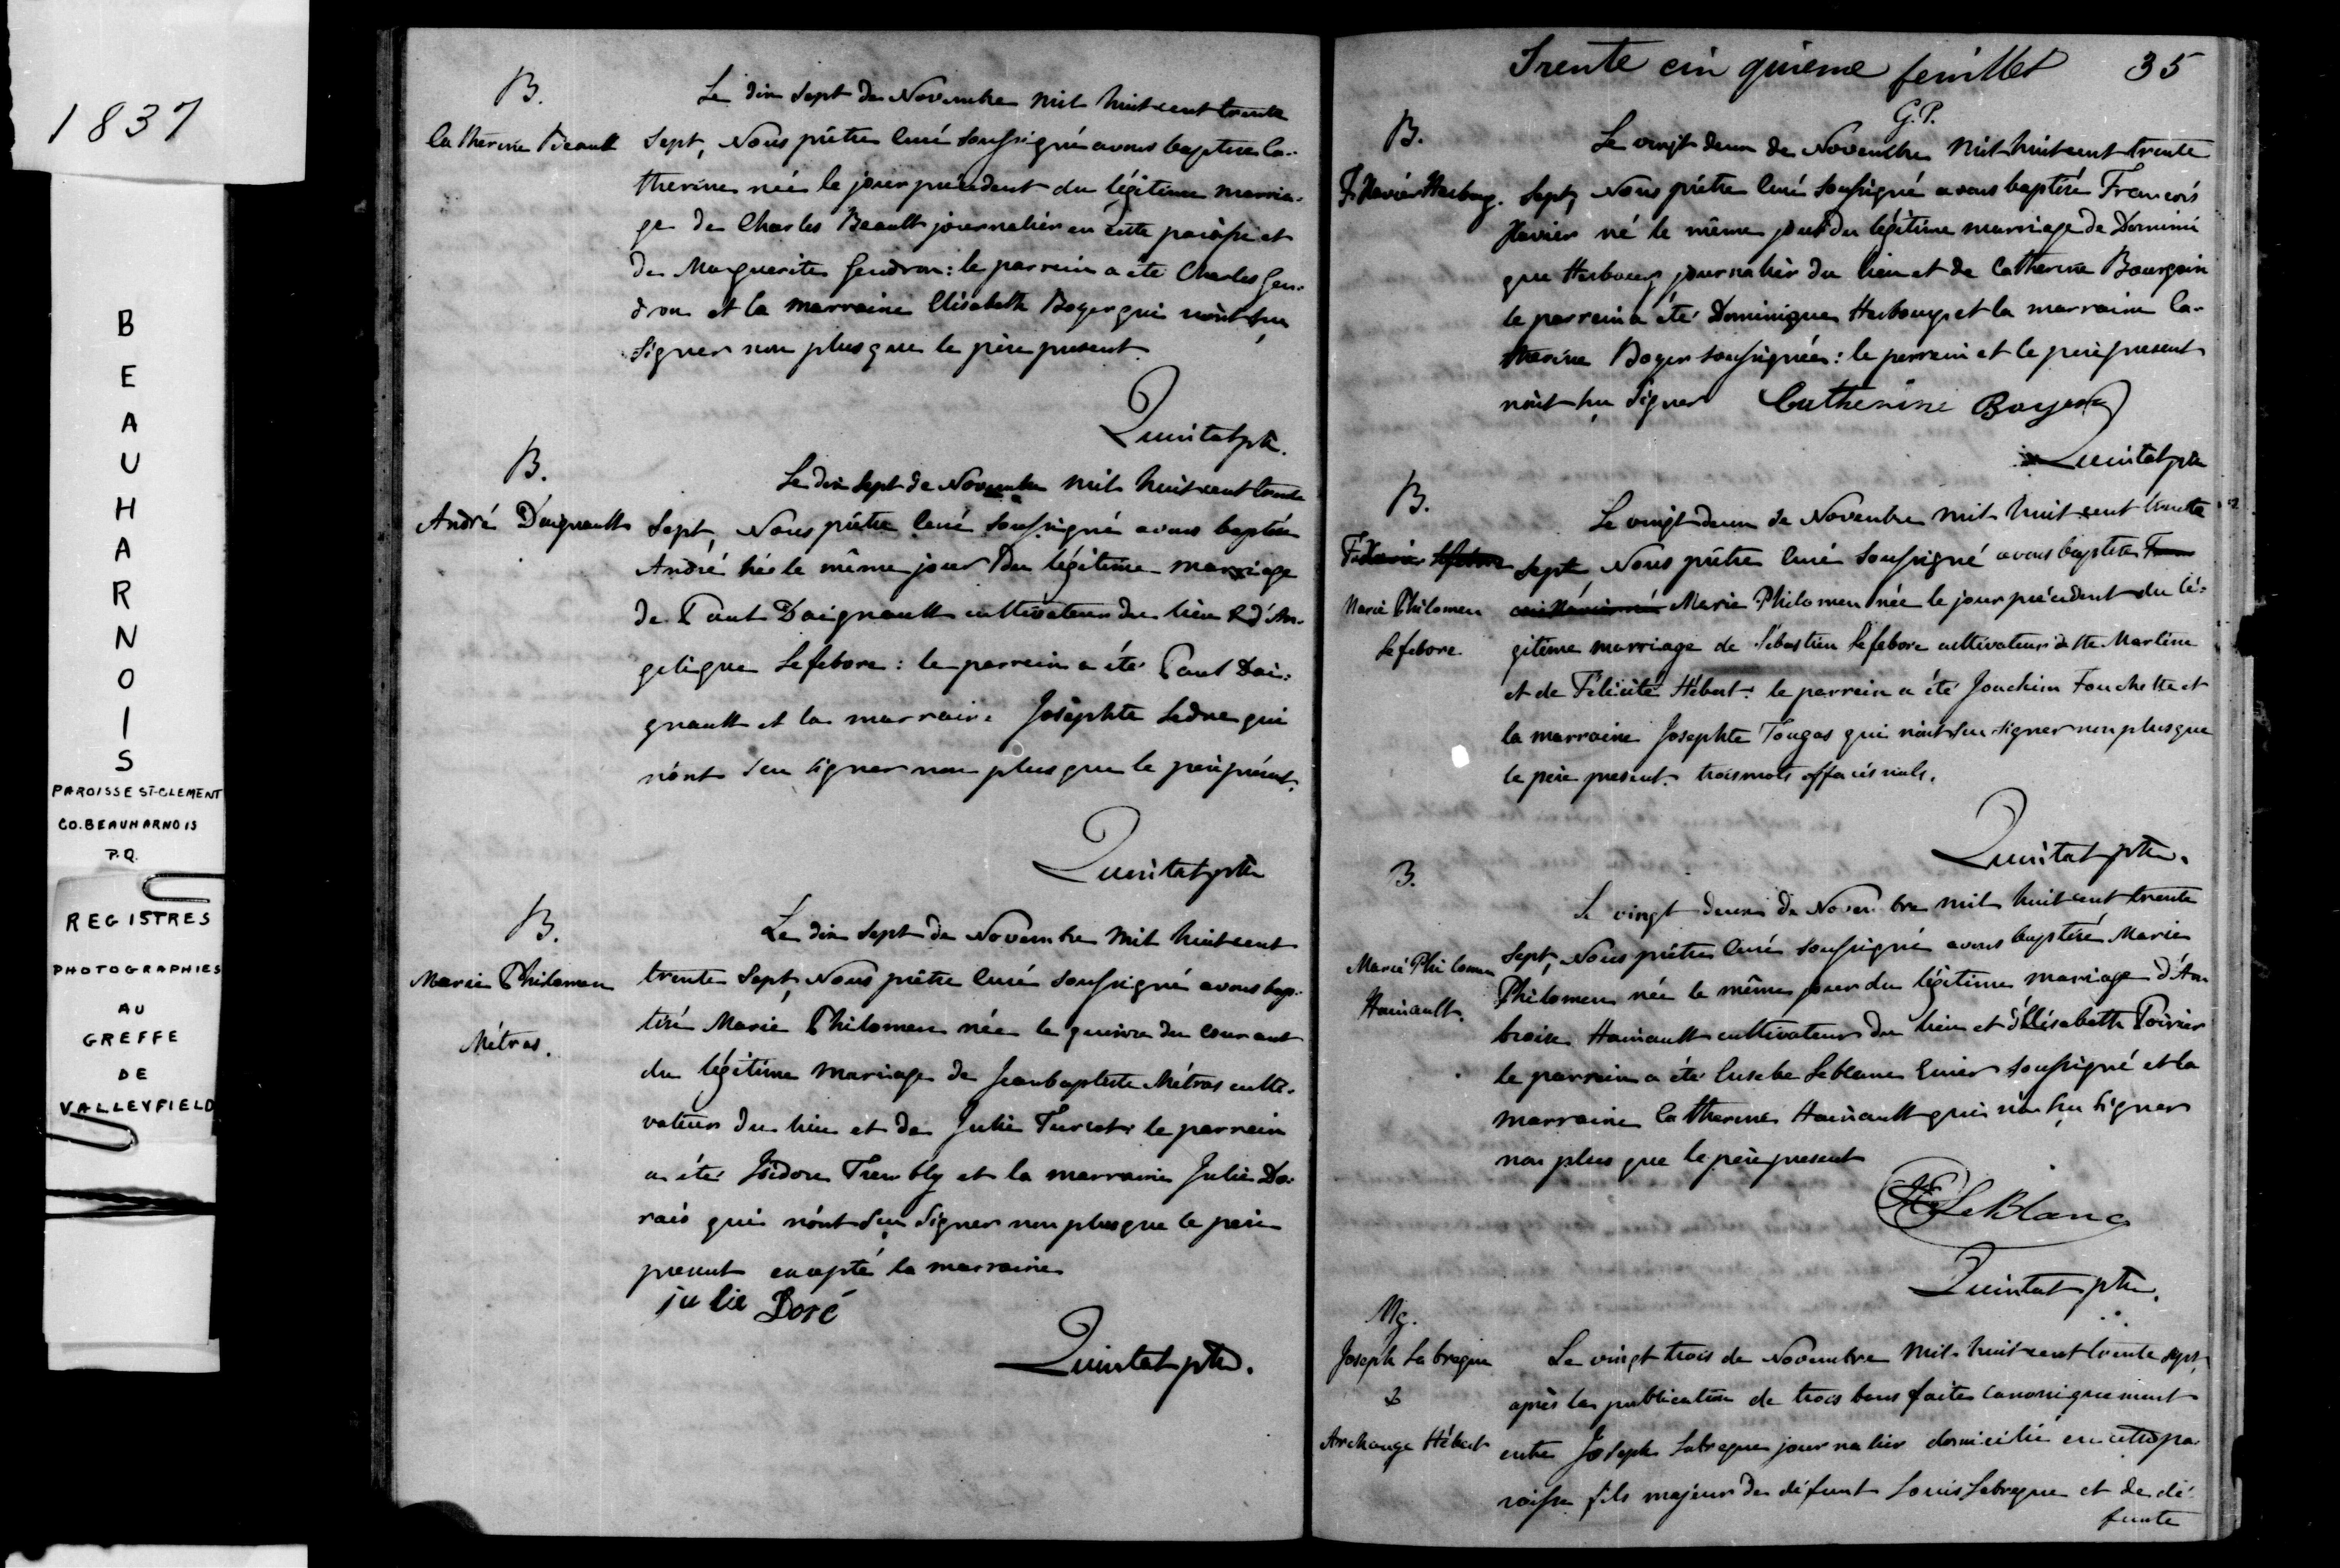 1837
B
E
A
U
H
A
R
N
O
I
S
PAROISSE ST-CLEMENT
CO. BEAUHARNOIS
P.Q.
REGISTRES
PHOTOGRAPHIES
AU
GREFFE
DE
VALLEYFIELD
B.
Catherine Beault
Le dix sept de Novembre mil huit cent trente
sept, Nous prêtre Curé soussigné avons baptisé Ca-
therine née le jour précédent du légitime marria-
ge de Charles Beault journalier en cette paroisse et
de Marguerite Gendron: le parrein a été Charles Gen-
dron et la marraine Elisabeth Boyer qui n'ont su
signer non plus que le père present.
Quintal ptre.
B.
André Daignault
Le dix sept de Novembre mil huit cent trente
sept, Nous prêtre Curé soussigné avons baptisé
André né le même jour du légitime marriage
de Paul Daignault cultivateur du lieu & d'An-
gelique Lefebvre: le parrein a été Paul Dai-
gnault et la marraine Josephte Leduc qui
n'ont seu signer non plus que le père présent.
Quintal ptre
B.
Marie Philomen
Métras.
Le dix sept de Novembre mil huit cent
trente sept, Nous prêtre Curé soussigné avons bap-
tisé Marie Philomen née le quinze du courant
du légitime mariage de Jean baptiste Métras culti-
vateur du lieu et de Julie Turcot: le parrein
a été Isidore Trembly et la marraine Julie Do-
rais qui n'ont seu signer non plus que le père
present excepté la marraine
julie Doré
Quintal ptre.
Trente cin quieme feuillet 35
G.P.
B.
F. Xavier Harbour.
Le vingt deux de Novembre mil huit cent trente
sept, Nous prêtre Curé soussigné avons baptisé François
Xavier né le même jour du légitime marriage de Domini
que Harbour journalier du lieu et de Catherine Bourgoin
le parrein a été Dominique Harbour et la marraine Ca-
therine Boyer soussignée: le parrein et le père present
n'ont su signer Catherine Boyer
Quintal ptre
B.
F. Xavier Lefebvre
Marie Philomen
Lefebvre
Le vingt deux de Novembre mil huit cent trente
sept Nous prêtre Curé soussigné avons baptisé Fran
cois Xavier né Marie Philomen née le jour précédent du lé-
gitime marriage de Sebastien Lefebvre cultivateur de Ste Martine
et de Félicité Hébert: le parrein a été Joachim Fouchette et
la marraine Josephte Tougas qui n'ont seu signer non plus que
le père present. trois mots effacés nuls.
Quintal ptre.
B.
Marie Philomen
Hainault.
Le vingt deux de Novembre mil huit cent trente
sept, Nous prêtre Curé soussigné avons baptisé Marie
Philomen née le même jour du légitime mariage d'Am
broise Hainault cultivateur du lieu et d'Elisabeth Poirier
le parrein a été Eusebe Leblanc Ecuier soussigné et la
marraine Catherine Hainault qui n'a su signer
non plus que le père present
LeBlanc
Quintal ptre.
Mg.
Joseph Labregue
&
Archange Hébert
Le vingt trois de Novembre mil huit cent trente sept,
après la publication de trois bans faites canoniquement
entre Joseph Labregue journalier domicilié en cette pa-
roisse fils majeur de défunt Louis Labregue et de dé-
funte